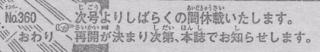 No.360 おわり
次号よりしばらくの間休載いたします。
再開が決まり次第、本誌でお知らせします。